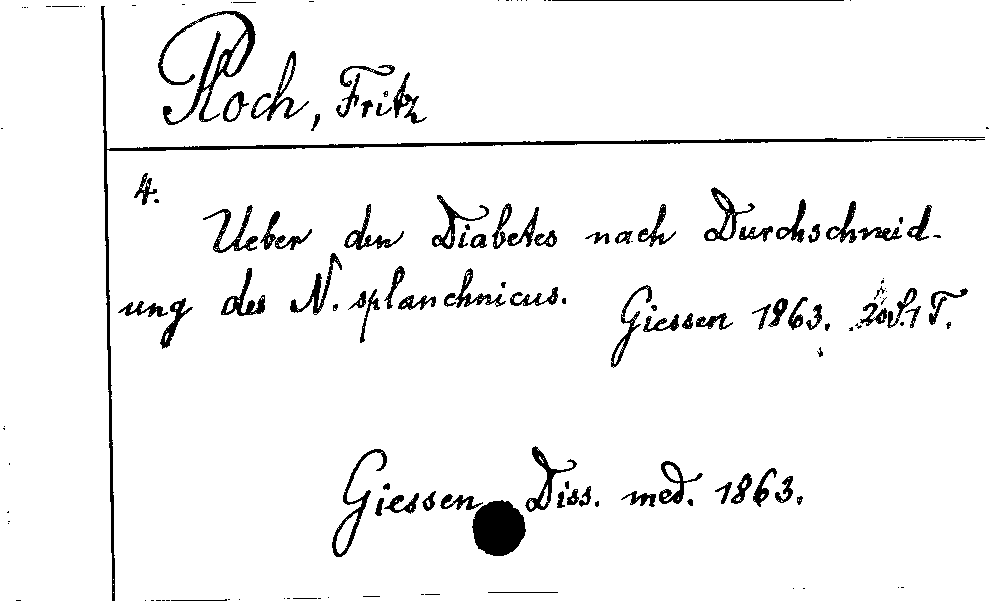 Ploch, Fritz
4.
Ueber den Diabetes nach Durchschneid-
ung des N. splanchnicus.
Giessen 1863. S. 1 T.
Giessen Diss. med. 1863.